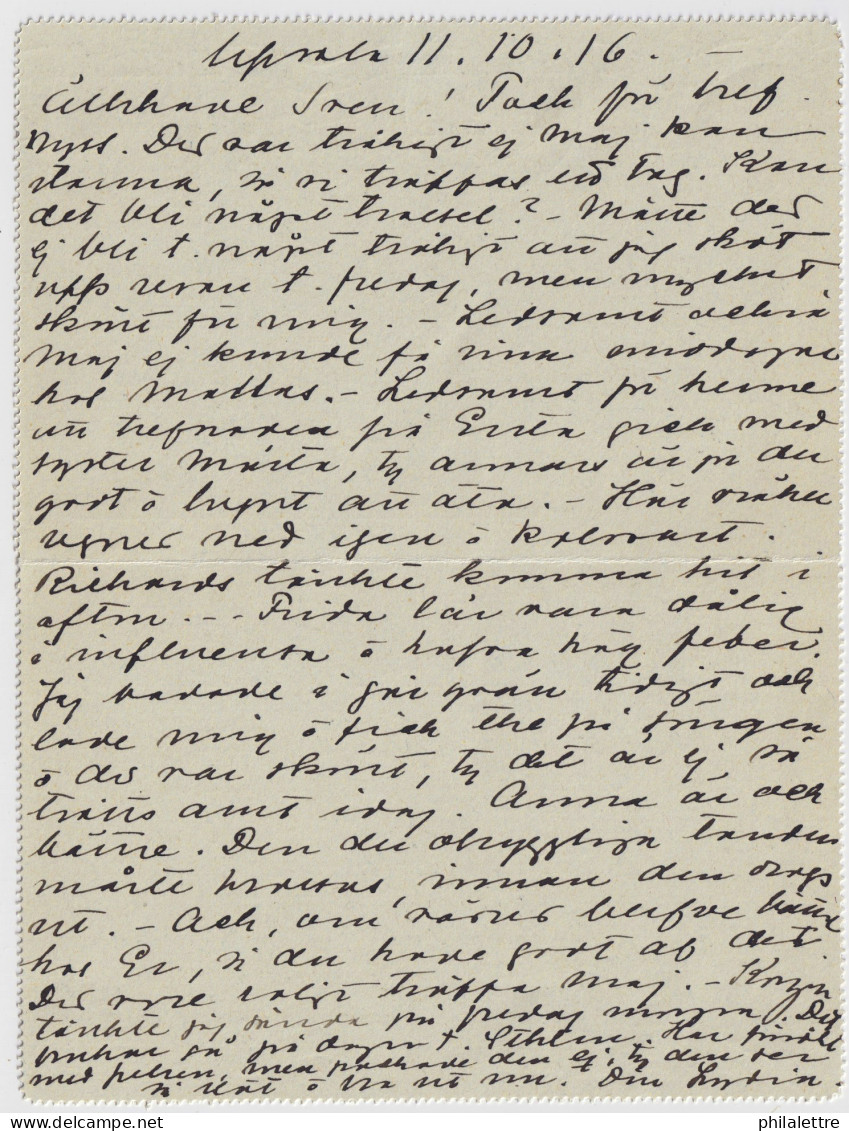 Upsala 11.10.16.
Älskade Sven! Tack för bref
nyss. Det var tråkigt ej Maj kan
stanna, så vi träffas ett tag. Kan
det bli något trassel? - Måtte det
ej bli t. något tråkigt att jag sköt
upp resan t. fredag, men mycket
skönt för mig. - Ledsamt också
Maj ej kunde få sina middagar
hos Mattas. - Ledsamt för henne
att trefnaden på Ersta gick med
syster Märta, ty annars är ju du
godt o lugnt att äta. - Här
regner ned igen o kolsvart.
Richards tänkte komma hit i
afton. - - Frida lär vara dålig
i influensa o hafva hög feber.
Jag badade i går tidigt och
lade mig o fick the på sängen
o det var skönt, ty det är ej så
trötts amt idag. Anna är och
bättre. Den du obryggliga tanden
måste, innan den
ut. - Ack, om blefve bättre
hos Er, så du hade godt af det
Det vore roligt träffa Maj. - Korgen
tänkte jag sända på fredag morgon. Det
på dagen t. Sthlm. Har
med pelsen, men packade den ej, ty den ser
så slät o bra ut nu. Din Lydia.
philalettre